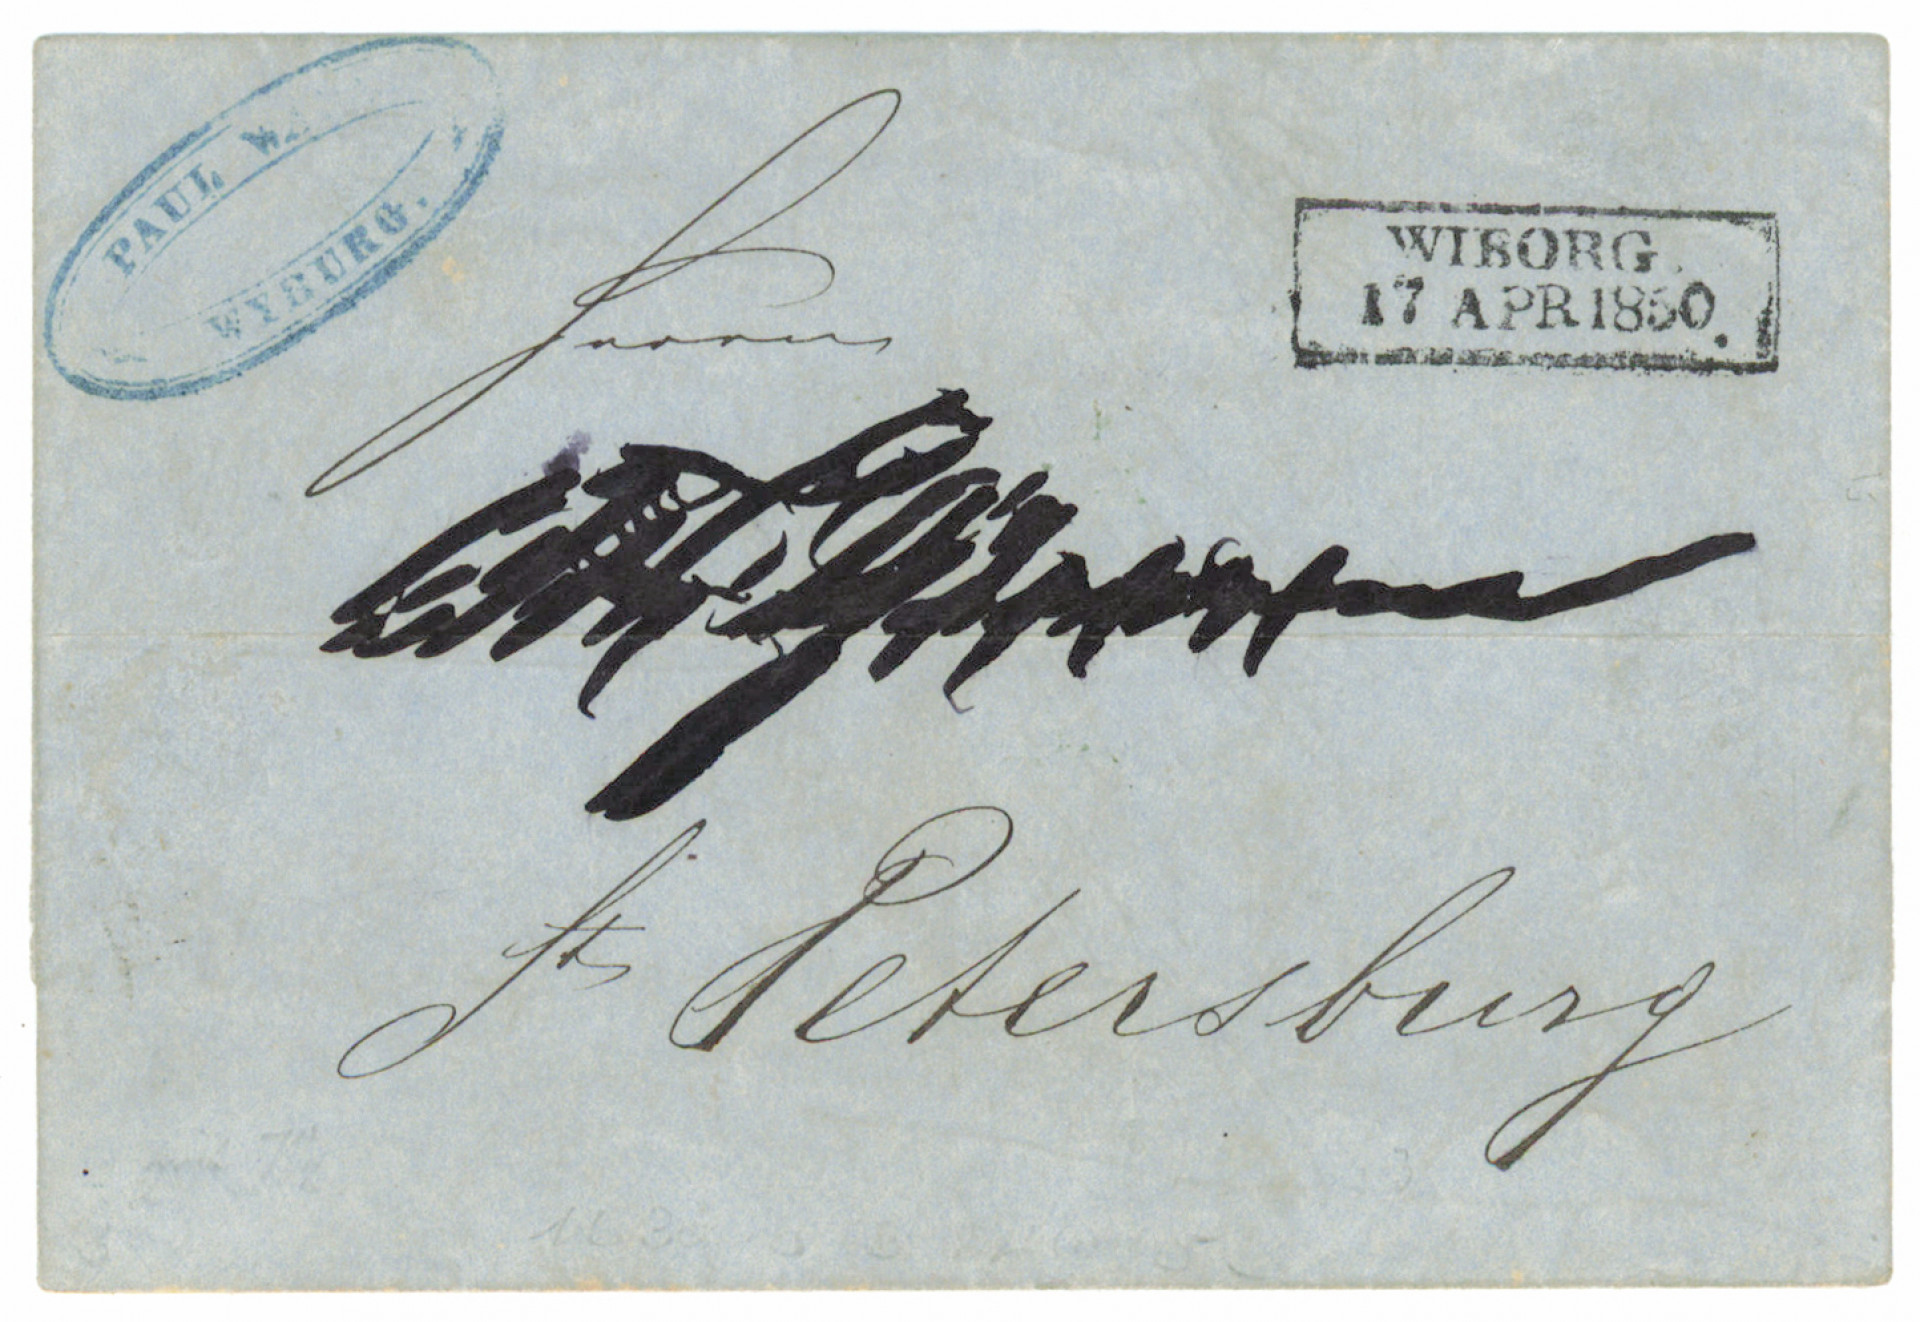 PAUL W
WYBURG.
WIBORG.
17 APR 1850.
Herrn
St Petersburg